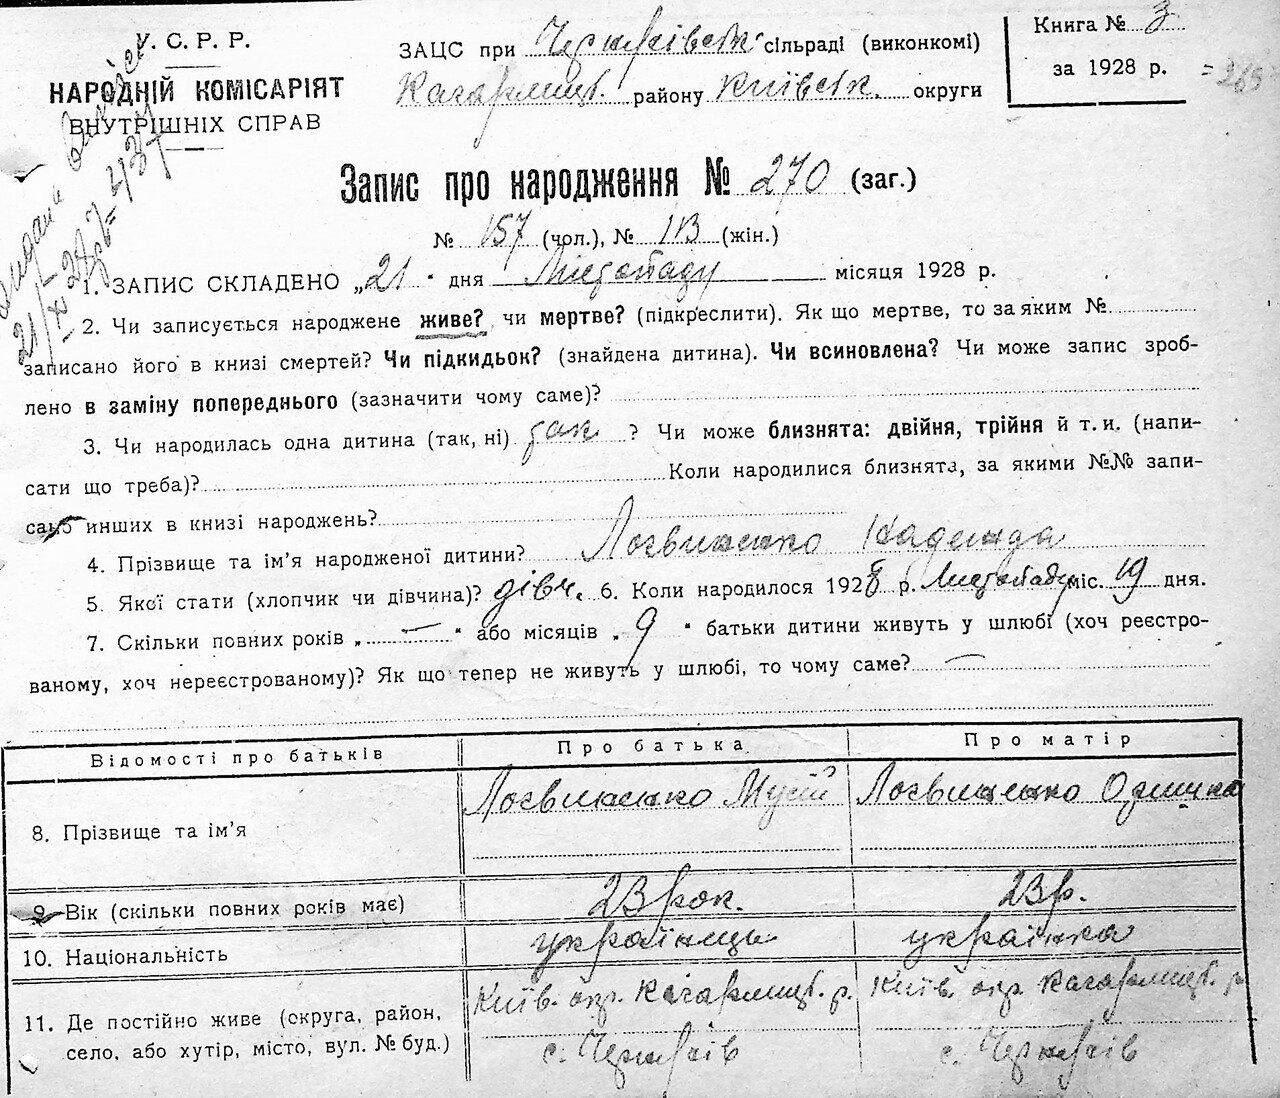 У. С. Р. Р.
НАРОДНІЙ КОМІСАРІЯТ
ВНУТРІШНІХ СПРАВ
ЗАЦС при сільраді (виконкомі)
Кагарлицьк. району Київськ. округи
Книга № 3
за 1928 р.
Запис про народження № 270 (заг.)
№ 157 (чол.), № 113 (жін.)
1. ЗАПИС СКЛАДЕНО „21“ дня Листопаду місяця 1928 р.
2. Чи записується народжене живе? чи мертве? (підкреслити). Як що мертве, то за яким №
записано його в книзі смертей? Чи підкидьок? (знайдена дитина). Чи всиновлена? Чи може запис зроб-
лено в заміну попереднього (зазначити чому саме)?
3. Чи народилась одна дитина (так, ні) так ? Чи може близнята: двійня, трійня й т. и. (напи-
сати що треба)? Коли народилися близнята, за якими №№ запи-
сано инших в книзі народжень?
4. Прізвище та ім’я народженої дитини? Логвиненко Надежда
5. Якої стати (хлопчик чи дівчина)? дівч. 6. Коли народилося 1928 р. Листопаду міс. 19 дня.
7. Скільки повних років „ — “ або місяців „ 9 “ батьки дитини живуть у шлюбі (хоч реєстро-
ваному, хоч нереєстрованому)? Як що тепер не живуть у шлюбі, то чому саме? —
Відомості про батьків Про батька Про матір
8. Прізвище та ім’я Логвиненко Мусій Логвиненко
9. Вік (скільки повних років має) 23 рок. 23 р.
10. Національність українець українка
11. Де постійно живе (округа, район, Київ. окр. Кагарлицьк. р. Київ. окр. Кагарлицьк. р.
село, або хутір, місто, вул. № буд.) с. с.